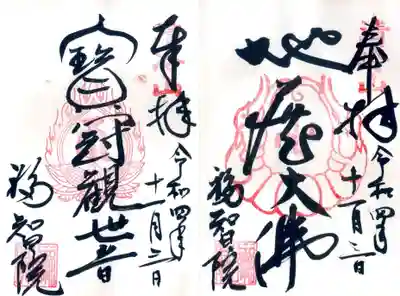 奉拝
令和四年
十一月三日
地蔵大佛
福智院
奉拝
令和四年
十一月三日
寶冠觀世音
福智院